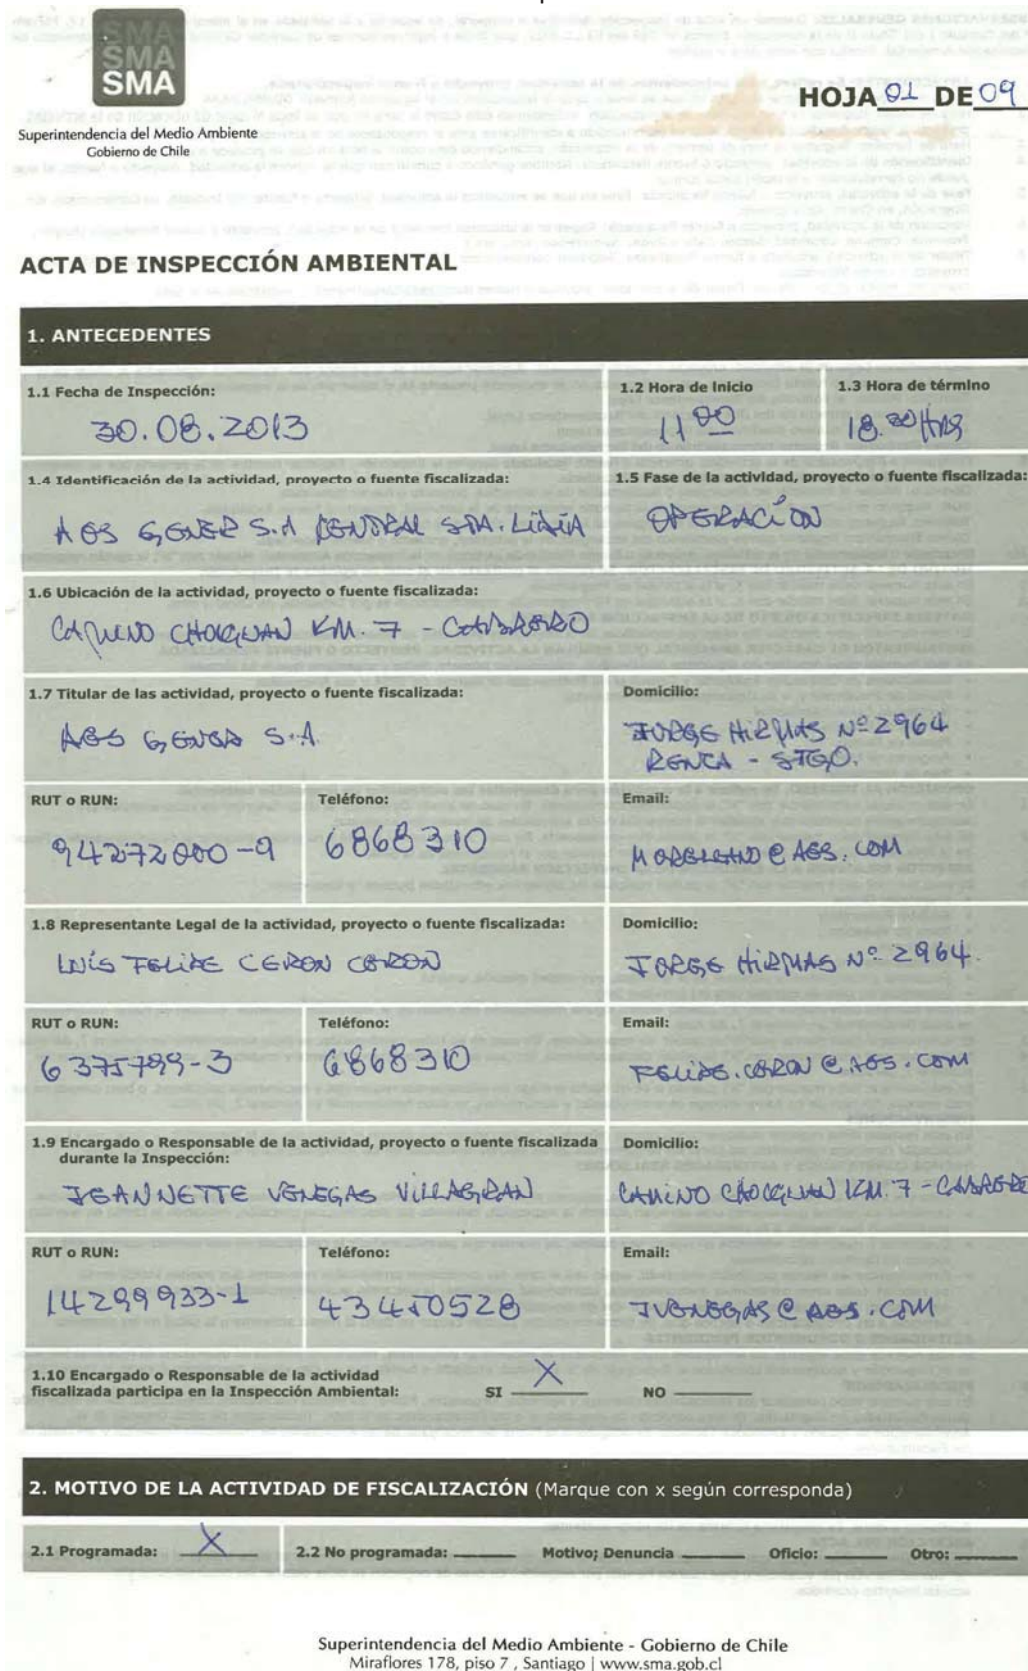 SMA
SMA
SMA
Superintendencia del Medio Ambiente
Gobierno de Chile
HOJA 01 DE 09
ACTA DE INSPECCIÓN AMBIENTAL
1. ANTECEDENTES
1.1 Fecha de Inspección:
30.08.2013
1.2 Hora de Inicio
11 00
1.3 Hora de término
18.30 HRS
1.4 Identificación de la actividad, proyecto o fuente fiscalizada:
AES GENER S.A CENTRAL STA. LIDIA
1.5 Fase de la actividad, proyecto o fuente fiscalizada:
OPERACIÓN
1.6 Ubicación de la actividad, proyecto o fuente fiscalizada:
CAMINO CHOLGUAN KM. 7 - CABRERO
1.7 Titular de las actividad, proyecto o fuente fiscalizada:
AES GENER S.A.
Domicilio:
JORGE HIRMAS Nº 2964
RENCA - STGO.
RUT o RUN:
94272000-9
Teléfono:
6868310
Email:
@ AES.COM
1.8 Representante Legal de la actividad, proyecto o fuente fiscalizada:
LUÍS FELIPE CERON CERON
Domicilio:
JORGE HIRMAS Nº 2964.
RUT o RUN:
6375799-3
Teléfono:
6868310
Email:
FELIPE.CERON @ AES.COM
1.9 Encargado o Responsable de la actividad, proyecto o fuente fiscalizada
durante la Inspección:
JEANNETTE VENEGAS VILLAGRAN
Domicilio:
CAMINO CHOLGUAN KM. 7 - CABRERO
RUT o RUN:
14299933-1
Teléfono:
43450528
Email:
JVENEGAS @ AES.COM
1.10 Encargado o Responsable de la actividad
fiscalizada participa en la Inspección Ambiental:
SI X
NO
2. MOTIVO DE LA ACTIVIDAD DE FISCALIZACIÓN (Marque con x según corresponda)
2.1 Programada: X
2.2 No programada: Motivo; Denuncia Oficio: Otro:
Superintendencia del Medio Ambiente - Gobierno de Chile
Miraflores 178, piso 7 , Santiago | www.sma.gob.cl